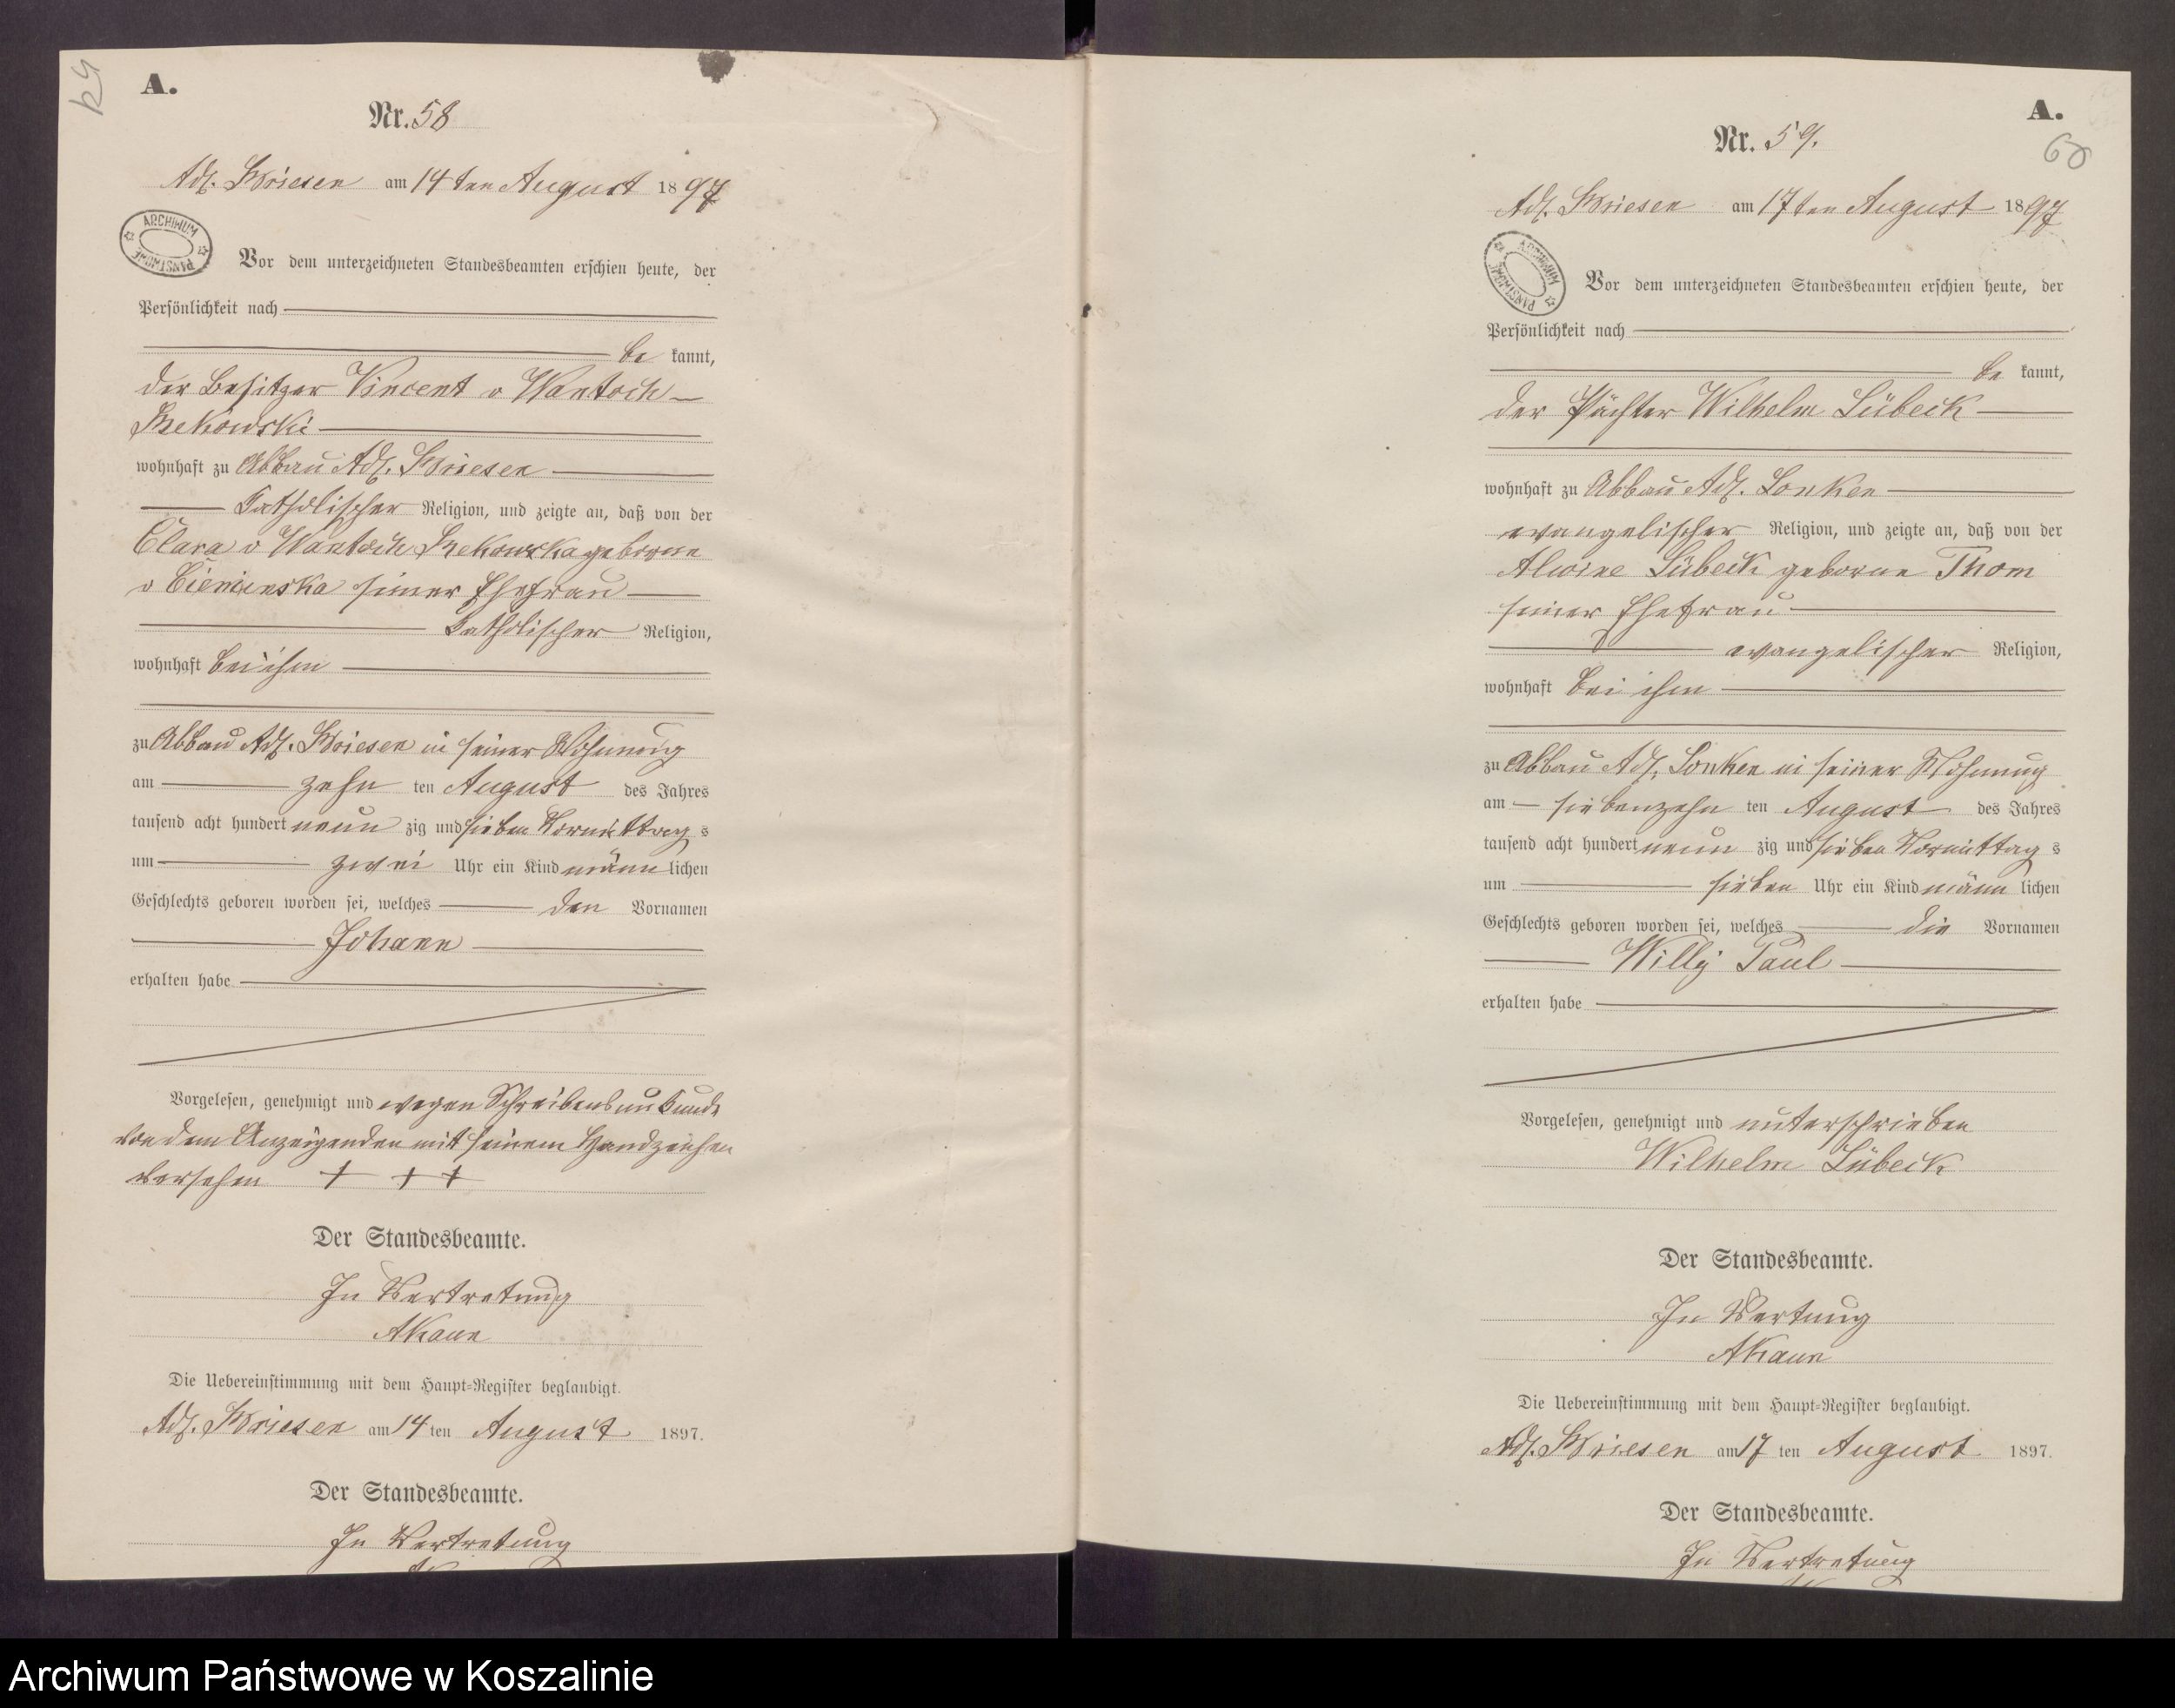 A.
Nr. 58
Adl. Briesen am 14 ten August 1897
ARCHIWUM PAŃSTWOWE
Vor dem unterzeichneten Standesbeamten erschien heute, der
Persönlichkeit nach
be kannt,
der Besitzer Vincent v Wantoch
Rekowski
wohnhaft zu Abbau Adl. Briesen
katholischer Religion, und zeigte an, daß von der
Clara v Wantoch Rekowska geborne
v Cieminska seiner Ehefrau
katholischer Religion,
wohnhaft bei ihm
zu Abbau Adl. Briesen in seiner Wohnung
am zehn ten August des Jahres
tausend acht hundert neun zig und sieben Vormittag s
um zwei Uhr ein Kind männ lichen
Geschlechts geboren worden sei, welches den Vornamen
Johann
erhalten habe
Vorgelesen, genehmigt und wegen Schreibensunkunde
von dem Anzeigenden mit seinem Handzeichen
versehen + + +
Der Standesbeamte.
In Vertretung
Die Uebereinstimmung mit dem Haupt-Register beglaubigt.
Adl. Briesen am 14 ten August 1897.
Der Standesbeamte.
In Vertretung
A.
60
Nr. 59.
Adl. Briesen am 17 ten August 1897
ARCHIWUM PAŃSTWOWE
Vor dem unterzeichneten Standesbeamten erschien heute, der
Persönlichkeit nach
be kannt,
der Pächter Wilhelm Lübeck
wohnhaft zu Abbau Adl. Lonken
evangelischer Religion, und zeigte an, daß von der
Alwine Lübeck geborne Thom
seiner Ehefrau
evangelischer Religion,
wohnhaft bei ihm
zu Abbau Adl. Lonken in seiner Wohnung
am siebenzehn ten August des Jahres
tausend acht hundert neun zig und sieben Vormittag s
um sieben Uhr ein Kind männ lichen
Geschlechts geboren worden sei, welches die Vornamen
Willy Paul
erhalten habe
Vorgelesen, genehmigt und unterschrieben
Wilhelm Lübeck
Der Standesbeamte.
In Vertung
Die Uebereinstimmung mit dem Haupt-Register beglaubigt.
Adl. Briesen am 17 ten August 1897.
Der Standesbeamte.
In Vertretung
Archiwum Państwowe w Koszalinie